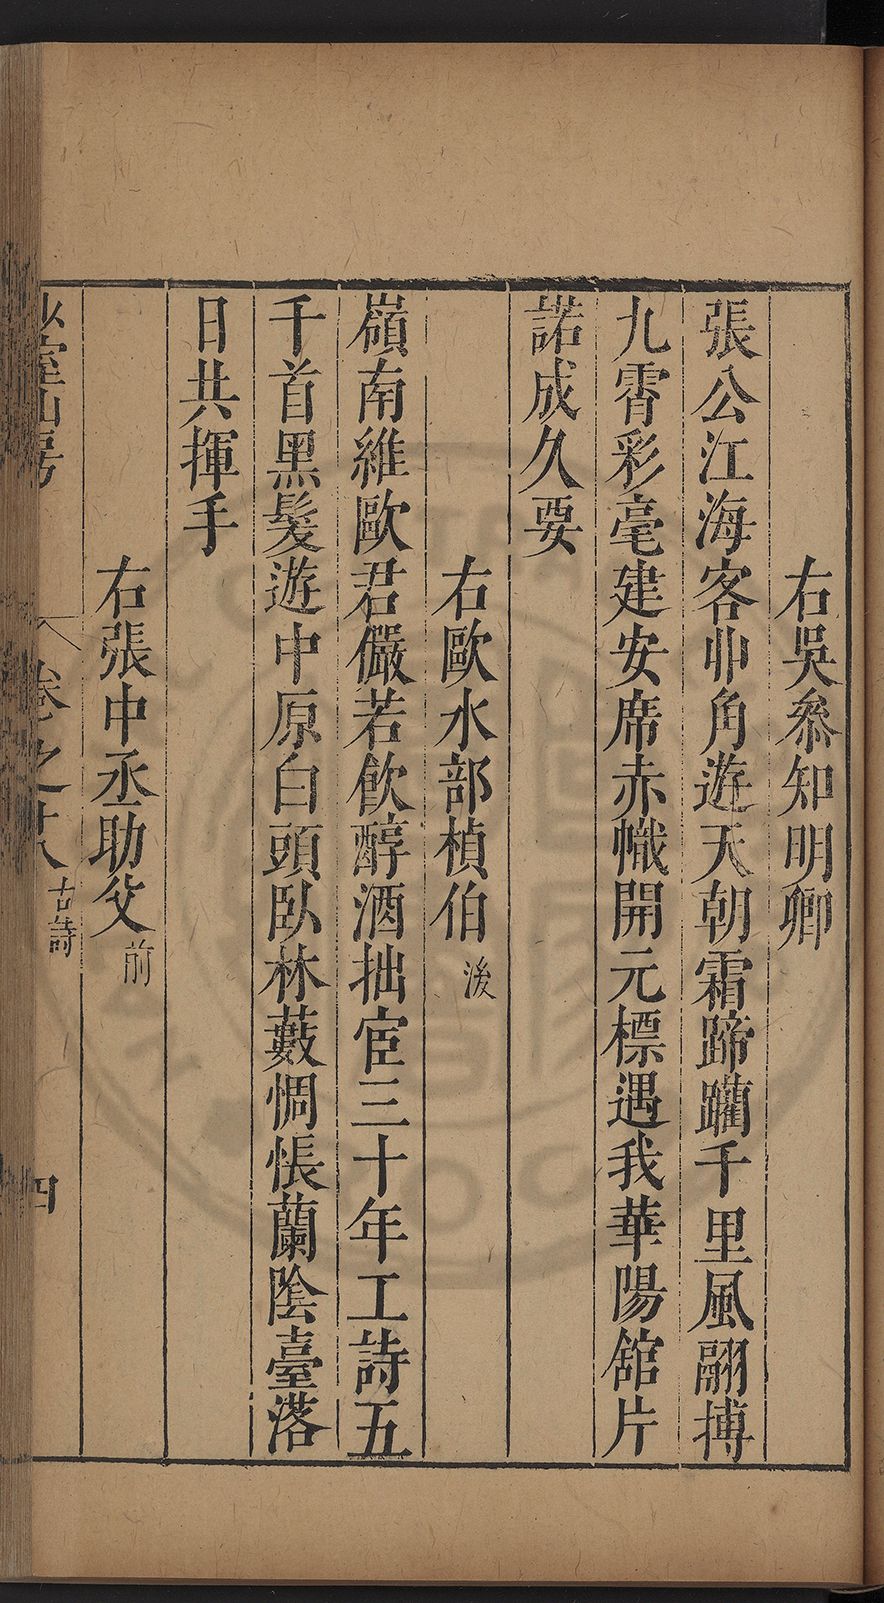 右吳叅知明卿
張公江海客丱角遊天朝霜蹄躪千里風翮摶
九霄彩毫建安席赤幟開元標遇我華陽舘片
諾成久要
右歐水部楨伯後
嶺南維歐君儼若飲醇酒拙宦三十年工詩五
千首黑髮遊中原白頭臥林藪惆悵蘭陰臺落
日共揮手
右張中丞助父前
少室山房
卷之十八古詩
四